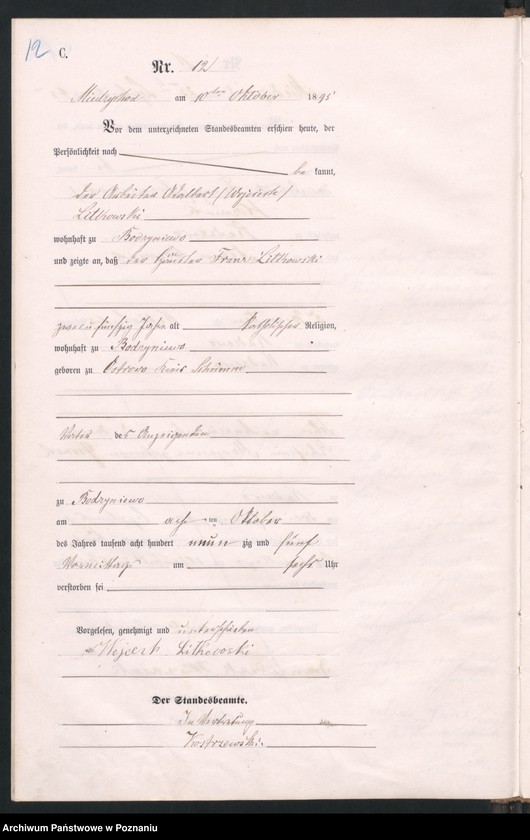 12 C.
Nr. 12
Miedzychod am 10ten Oktober 1895
Vor dem unterzeichneten Standesbeamten erschien heute, der
Persönlichkeit nach
be kannt,
der Arbeiter Adalbert / Wojciech /
Litkowski
wohnhaft zu Bodzyniewo
und zeigte an, daß der Häusler Franz Litkowski
zwei und fünfzig Jahre alt Katholischer Religion,
wohnhaft zu Bodzyniewo
geboren zu Ostrowo Kreis Schrimm
Vater des Anzeigenden
zu Bodzyniewo
am acht ten Oktober
des Jahres tausend acht hundert neun zig und fünf
Vormittags um sechs Uhr
verstorben sei
Vorgelesen, genehmigt und unterschrieben
Wojciech Litkowski
Der Standesbeamte.
In Vertretung
Kostrzewski.
Archiwum Państwowe w Poznaniu